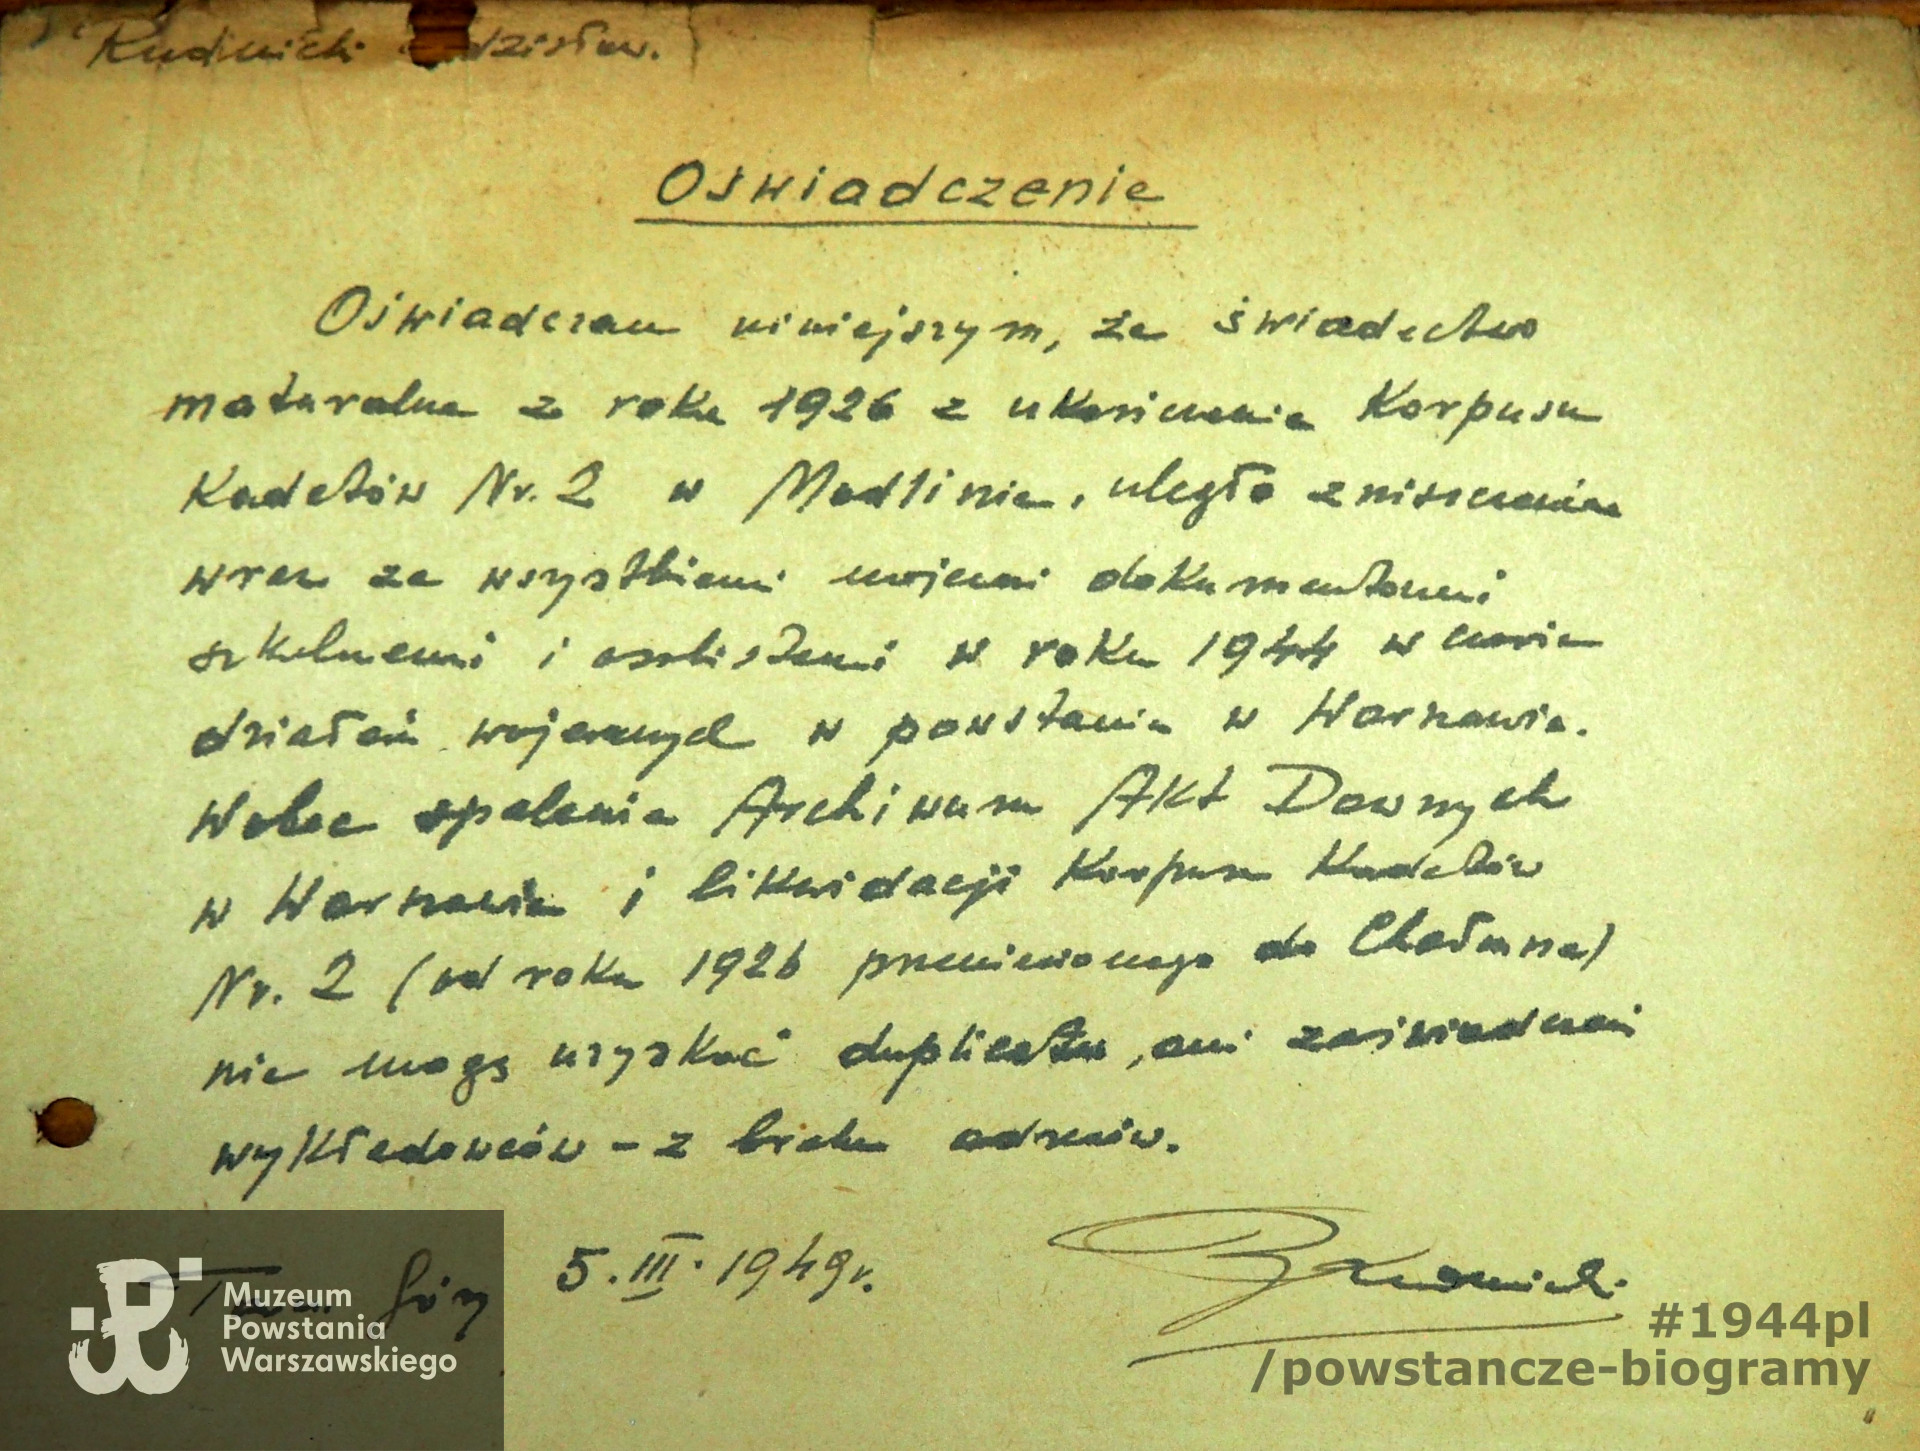 Rudnicki Zdzisław.
Oświadczenie
Oświadczam niniejszym, że świadectwo
maturalne z roku 1926 z ukończenia Korpusu
Kadetów Nr. 2 w Modlinie, uległo zniszczeniu
wraz ze wszystkiemi mojemi dokumentami
szkolnemi i osobistemi w roku 1944 w czasie
działań wojennych w powstaniu w Warszawie.
Wobec spalenia Archiwum Akt Dawnych
w Warszawie i likwidacji Korpusu Kadetów
Nr. 2 (od roku 1926 przeniesionego do Chełmna)
nie mogę uzyskać duplikatu, ani zaświadczeń
wykładowców - z braku adresów.
Góry 5.III.1949r.
Muzeum
Powstania
Warszawskiego
#1944pl
/powstancze-biogramy